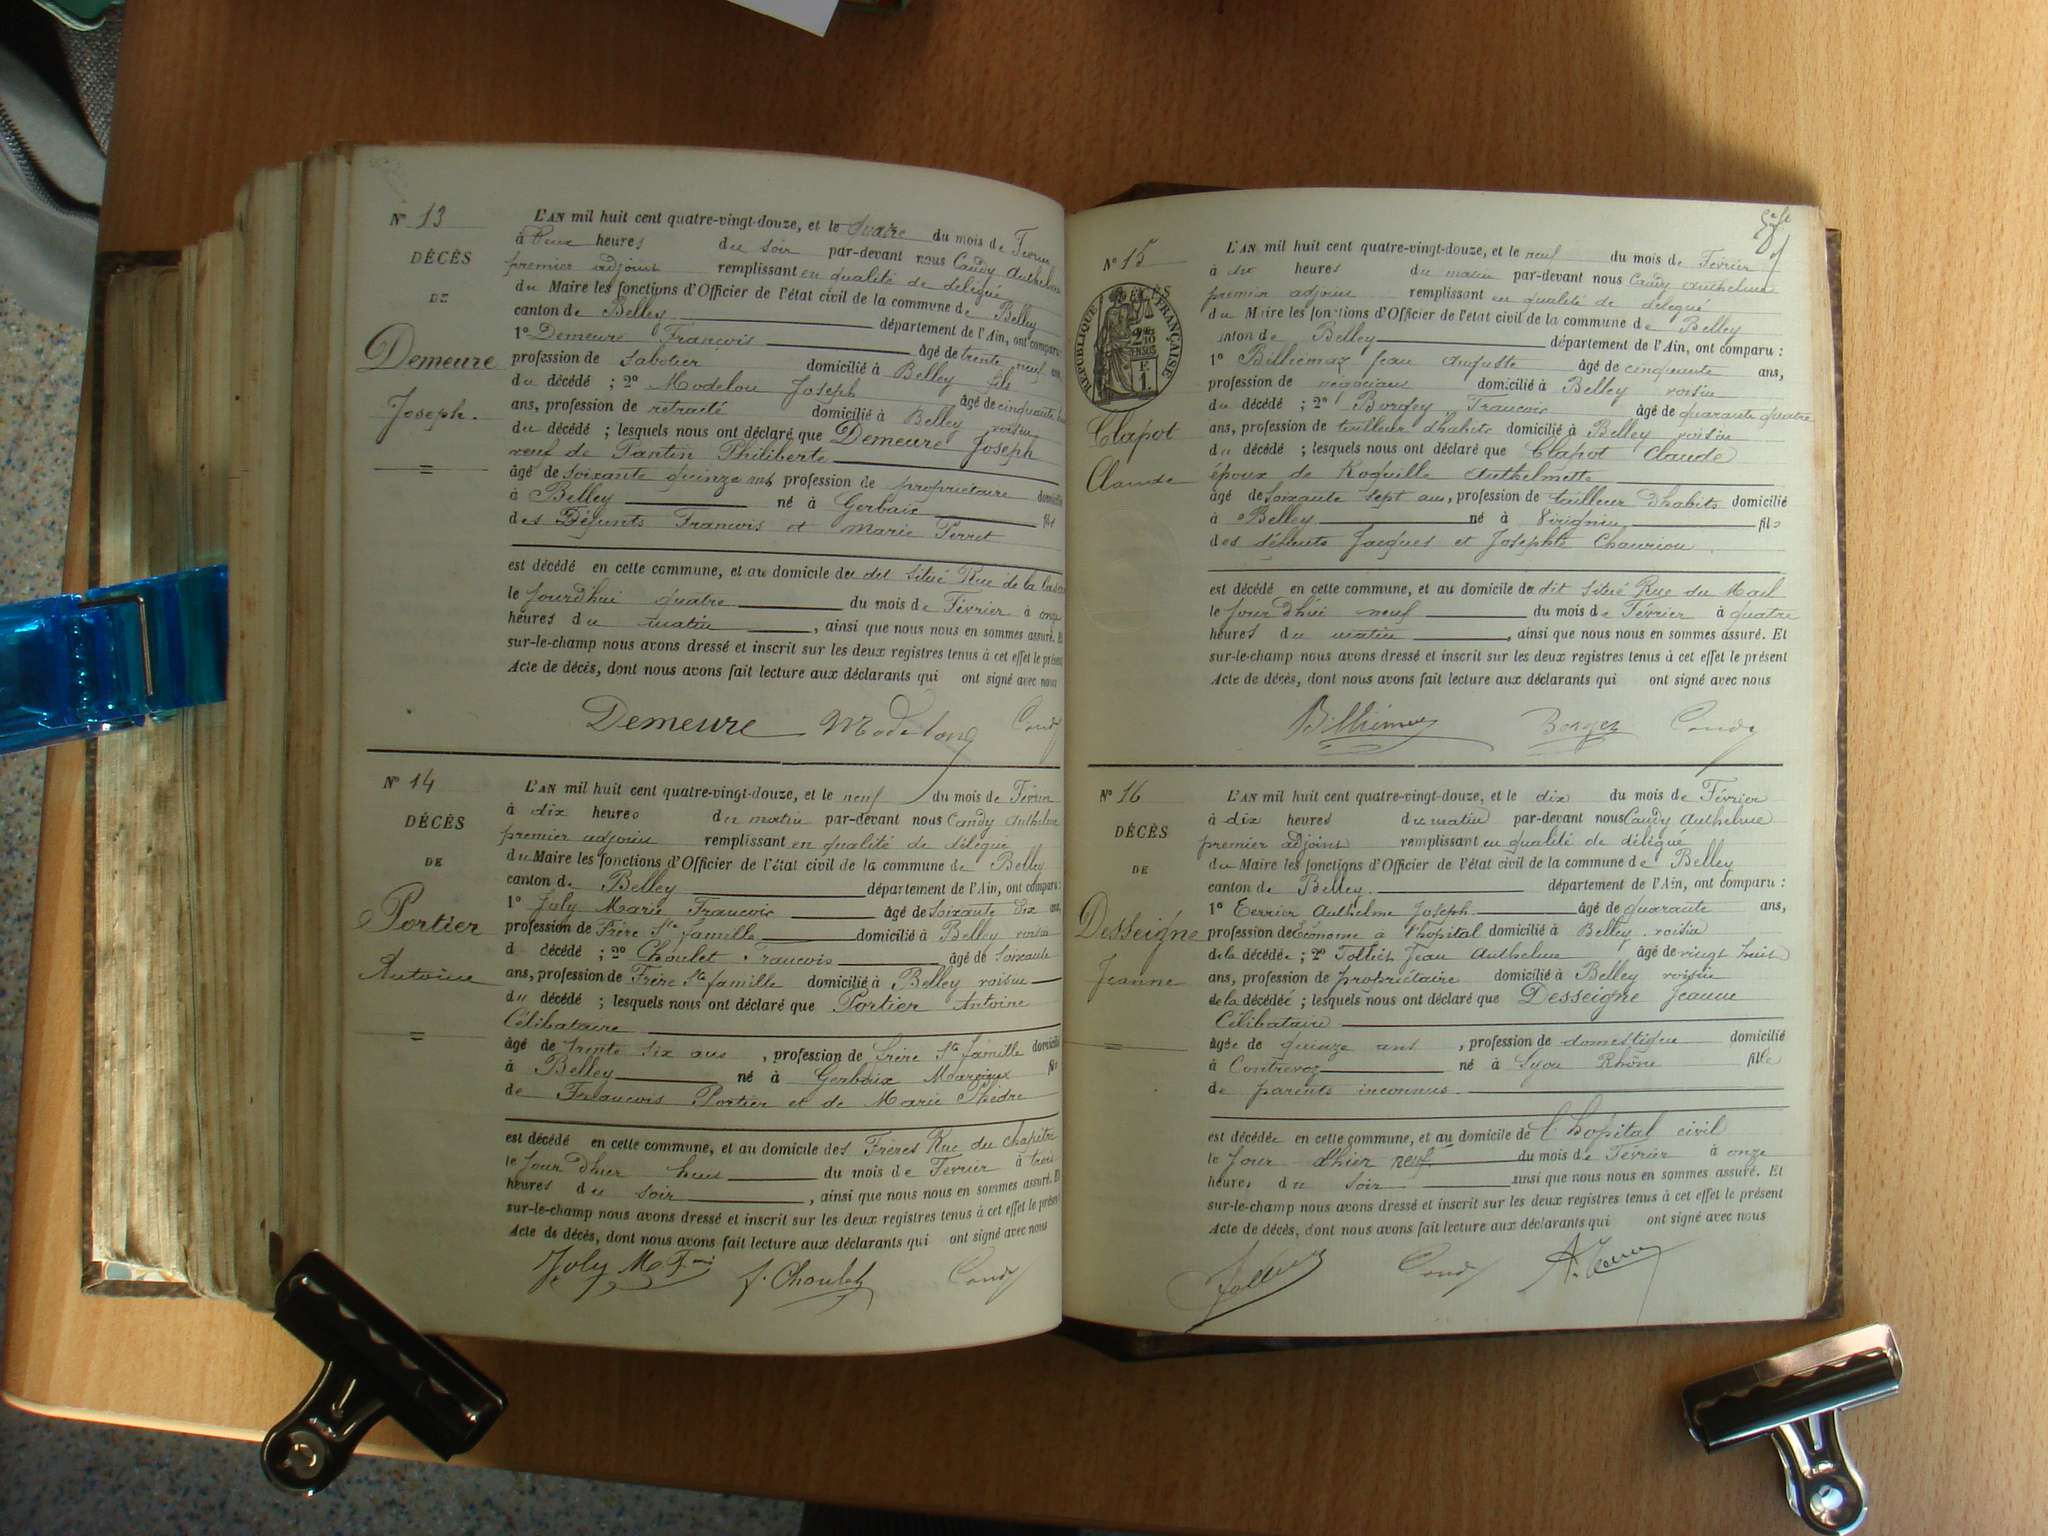 N° 13
DÉCÈS
DE
Demeure
Joseph.
L'AN mil huit cent quatre-vingt-douze, et le quatre du mois de Février
à Deux heures du soir par-devant nous Candy Anthelme
premier adjoint remplissant en qualité de délégué
du Maire les fonctions d'Officier de l'état civil de la commune de Belley
canton de Belley département de l'Ain, ont comparu
1° Demeure François âgé de trente neuf ans,
profession de sabotier domicilié à Belley fils
du décédé ; 2° Modelon Joseph âgé de cinquante
ans, profession de retraité domicilié à Belley voisin
du décédé ; lesquels nous ont déclaré que Demeure Joseph
veuf de Pantin Philiberte
âgé de soixante quinze ans, profession de propriétaire domicilié
à Belley né à Gerbaix fils
des Défunts François et Marie Perret
est décédé en cette commune, et au domicile du dit situé Rue de la
le Jourd'hui quatre du mois de Février à onze
heures du matin, ainsi que nous nous en sommes assuré. Et
sur-le-champ nous avons dressé et inscrit sur les deux registres tenus à cet effet le présent
Acte de décès, dont nous avons fait lecture aux déclarants qui ont signé avec nous
Demeure Modelong Candy
N° 14
DÉCÈS
DE
Portier
Antoine
L'AN mil huit cent quatre-vingt-douze, et le neuf du mois de Février
à dix heures du matin par-devant nous Candy Anthelme
premier adjoint remplissant en qualité de délégué
du Maire les fonctions d'Officier de l'état civil de la commune de Belley
canton de Belley département de l'Ain, ont comparu :
1° Joly Marie François âgé de soixante dix ans,
profession de Frère Ste famille domicilié à Belley voisin
d décédé ; 2° Choulet François âgé de soixante
ans, profession de Frère Ste famille domicilié à Belley voisin
du décédé ; lesquels nous ont déclaré que Portier Antoine
Célibataire
âgé de trente six ans , profession de frère Ste famille domicilié
à Belley né à Gerbaix fils
de François Portier et de Marie Phédre
est décédé en cette commune, et au domicile des Frères Rue du chapitre
le Jour D'hier huit du mois de Février à trois
heures du soir, ainsi que nous nous en sommes assuré. Et
sur-le-champ nous avons dressé et inscrit sur les deux registres tenus à cet effet le présent
Acte de décès, dont nous avons fait lecture aux déclarants qui ont signé avec nous
Joly M Fois f. Choulet Candy
N° 15
DÉCÈS
RÉPUBLIQUE FRANÇAISE
Clapot
Claude
L'AN mil huit cent quatre-vingt-douze, et le neuf du mois de Février
à six heures du matin par-devant nous Candy Anthelme
premier adjoint remplissant en qualité de délégué
du Maire les fonctions d'Officier de l'état civil de la commune de Belley
canton de Belley département de l'Ain, ont comparu :
1° Billiemaz Jean Auguste âgé de cinquante ans,
profession de négociant domicilié à Belley voisin
du décédé ; 2° Borgey François âgé de quarante quatre
ans, profession de tailleur d'habits domicilié à Belley voisin
du décédé ; lesquels nous ont déclaré que Clapot Claude
époux de Roquille Anthelmette
âgé de soixante sept ans, profession de tailleur D'habits domicilié
à Belley né à Virignin fils
des défunts Jacques et Josephte
est décédé en cette commune, et au domicile du dit situé Rue du Mail
le Jour d'hui neuf du mois de Février à quatre
heures du matin, ainsi que nous nous en sommes assuré. Et
sur-le-champ nous avons dressé et inscrit sur les deux registres tenus à cet effet le présent
Acte de décès, dont nous avons fait lecture aux déclarants qui ont signé avec nous
Billiémaz Borgey Candy
N° 16
DÉCÈS
DE
Desseigne
Jeanne
L'AN mil huit cent quatre-vingt-douze, et le dix du mois de Février
à dix heures du matin par-devant nous Candy Anthelme
premier adjoint remplissant en qualité de délégué
du Maire les fonctions d'Officier de l'état civil de la commune de Belley
canton de Belley. département de l'Ain, ont comparu :
1° Terrier Anthelme Joseph âgé de quarante ans,
profession de Econome à l'hopital domicilié à Belley. voisin
de la décédée ; 2° Tollet Jean Anthelme âgé de vingt huit
ans, profession de propriétaire domicilié à Belley voisin
de la décédée ; lesquels nous ont déclaré que Desseigne Jeanne
Célibataire
âgée de quinze ans , profession de domestique domicilié
à Contrevoz né à Lyon Rhône fille
de parents inconnus.
est décédée en cette commune, et au domicile de l'hopital civil
le Jour d'hier neuf du mois de Février à onze
heures du soir ainsi que nous nous en sommes assuré. Et
sur-le-champ nous avons dressé et inscrit sur les deux registres tenus à cet effet le présent
Acte de décès, dont nous avons fait lecture aux déclarants qui ont signé avec nous
Candy